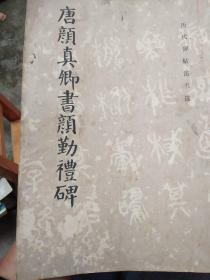 唐顏真卿書顏勤禮碑
历代碑帖法书选